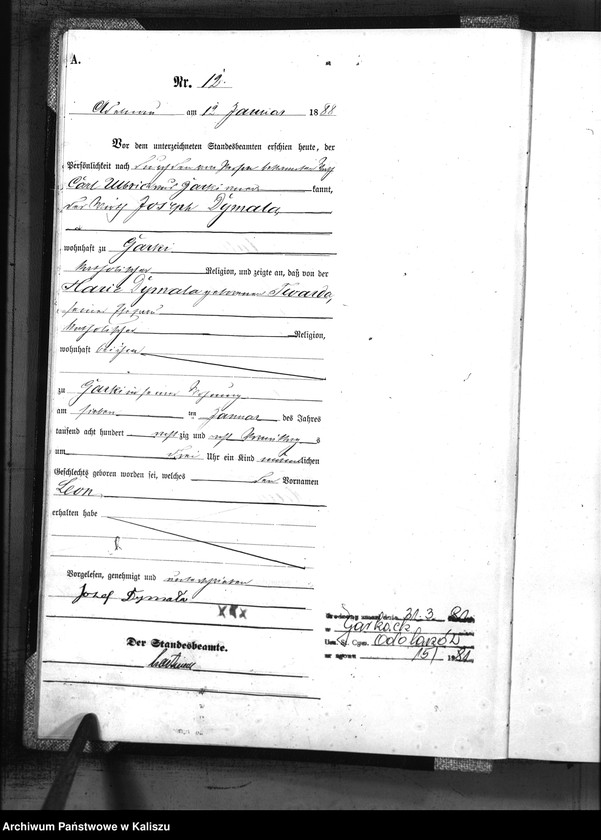 A.
Nr. 12.
Adelnau am 12 Januar 1888
Vor dem unterzeichneten Standesbeamten erschien heute, der
Persönlichkeit nach
Carl Ulbrich aus Garki kannt,
der Wirth Joseph Dymala,
wohnhaft zu Garki
katholischer Religion, und zeigte an, daß von der
Marie Dymala geborenen Twarda,
seiner Ehefrau
katholischer Religion,
wohnhaft bei ihm
zu Garki in seiner Wohnung
am sieben ten Januar des Jahres
tausend acht hundert acht zig und acht Vormittags
um drei Uhr ein Kind männlichen
Geschlechts geboren worden sei, welches den Vornamen
Leon
erhalten habe
Vorgelesen, genehmigt und unterschrieben
Jozef Dymała
xxx
Der Standesbeamte.
31. 3.
Garkach
Odolanów
151
Archiwum Państwowe w Kaliszu